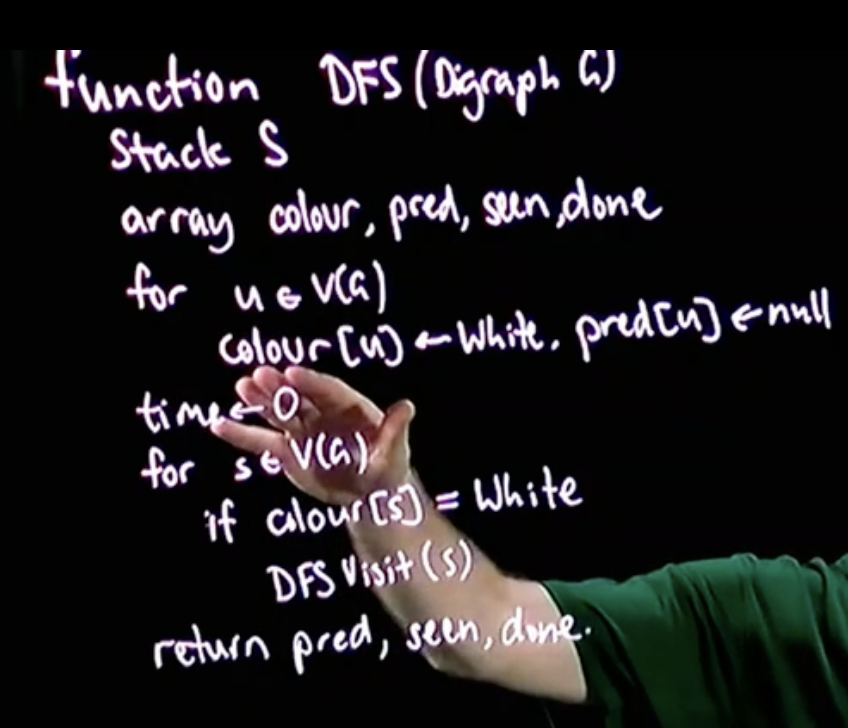 function DFS(Digraph G)
Stack S
array colour, pred, seen, done
for u ∈ V(G)
colour[u] ← White. pred[u] ← null
time ← 0
for s ∈ V(G)
if colour[s] = White
DFSVisit(s)
return pred, seen, done.